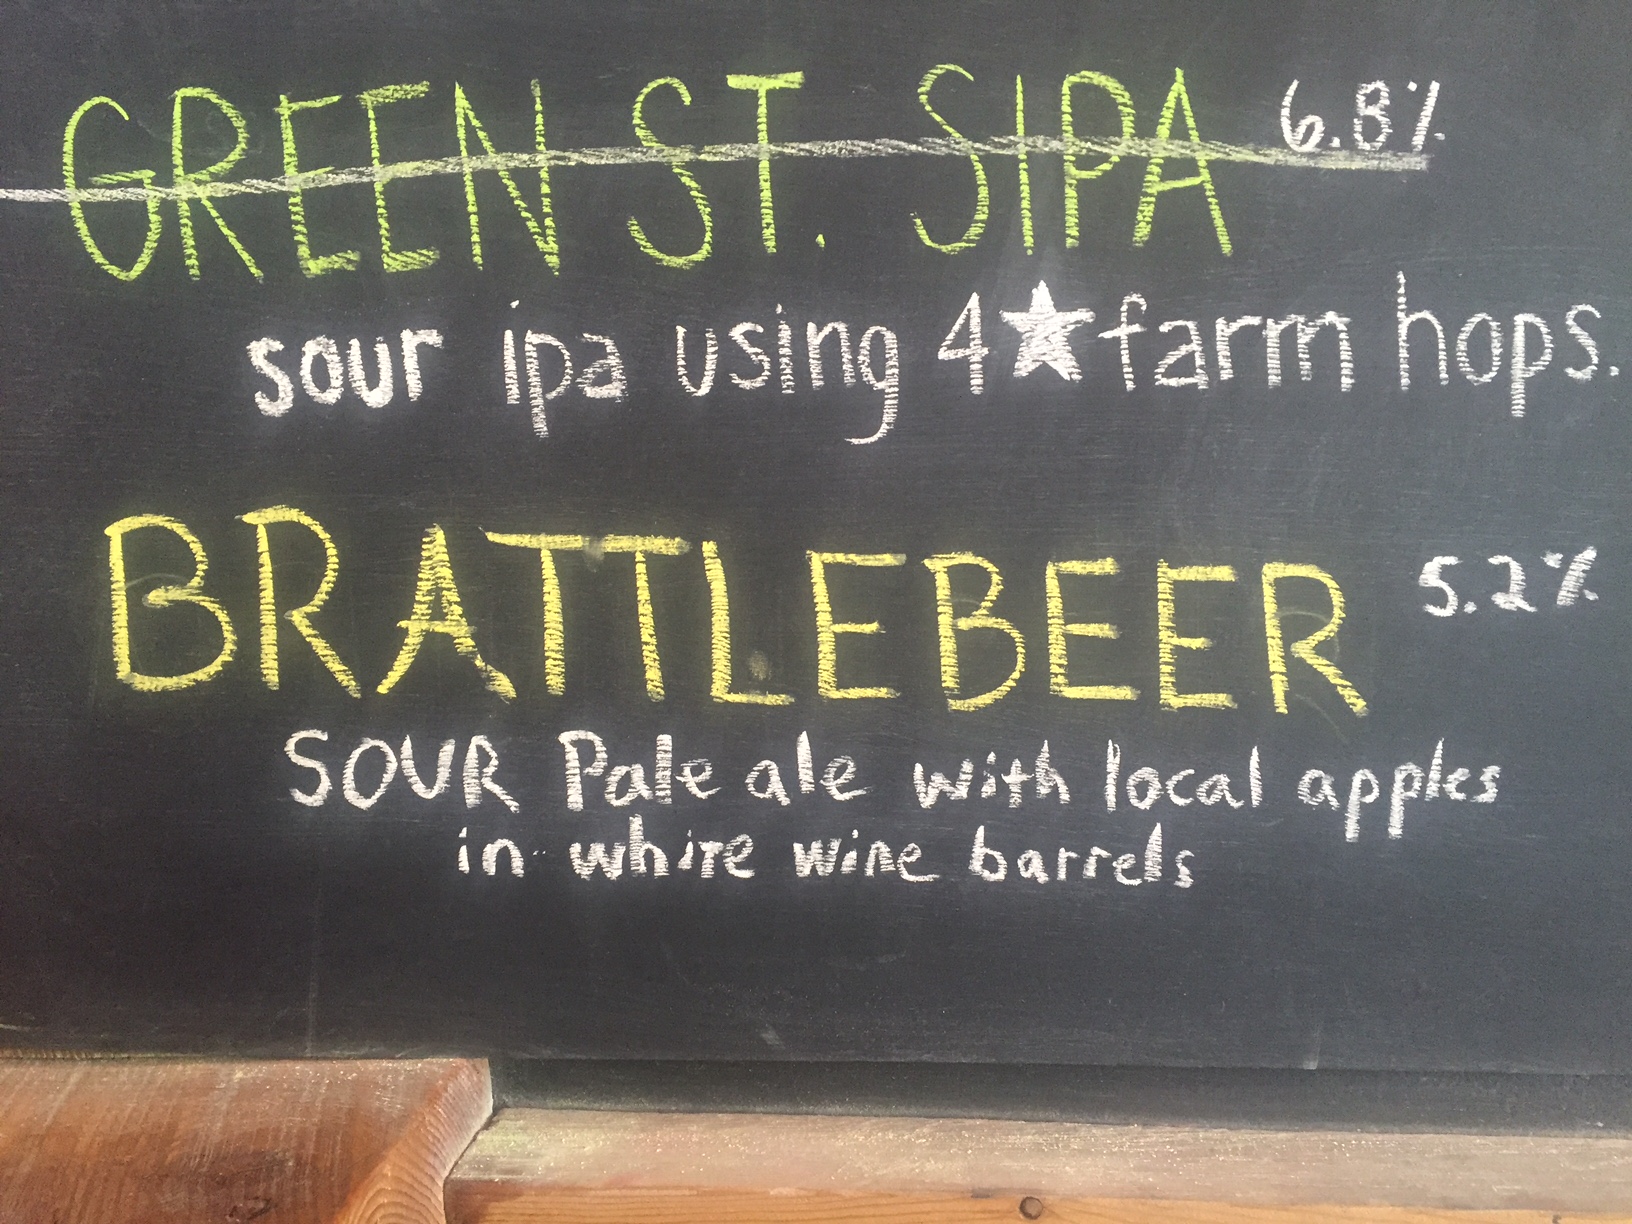 GREEN ST. SIPA 6.8%
sour ipa using 4★farm hops.
BRATTLEBEER 5.2%
SOUR Pale ale with local apples
in white wine barrels